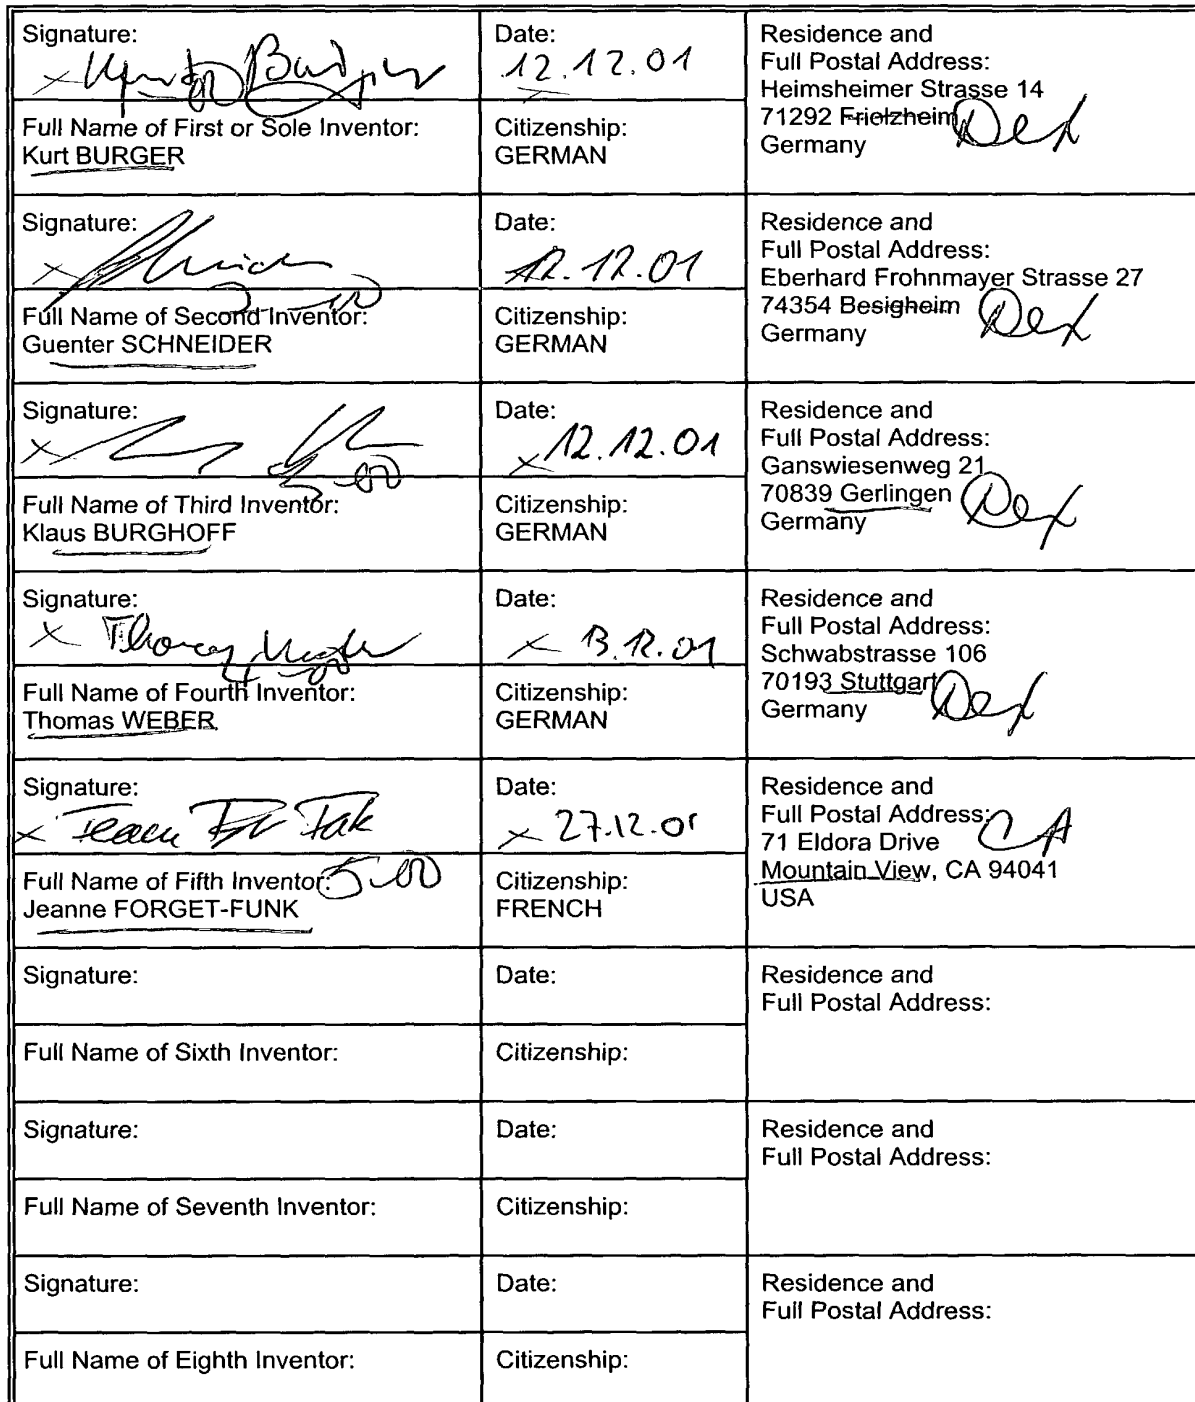 Signature:
Kurt Burger
Date:
12.12.01
Residence and
Full Postal Address:
Heimsheimer Strasse 14
71292 Friolzheim
Germany
DEX
Full Name of First or Sole Inventor:
Kurt BURGER
Citizenship:
GERMAN
Signature:
Date:
12.12.01
Residence and
Full Postal Address:
Eberhard Frohnmayer Strasse 27
74354 Besigheim
Germany
DEX
Full Name of Second Inventor:
Guenter SCHNEIDER
Citizenship:
GERMAN
Signature:
Date:
12.12.01
Residence and
Full Postal Address:
Ganswiesenweg 21
70839 Gerlingen
Germany
DEX
Full Name of Third Inventor:
Klaus BURGHOFF
Citizenship:
GERMAN
Signature:
Thomas Weber
Date:
13.12.01
Residence and
Full Postal Address:
Schwabstrasse 106
70193 Stuttgart
Germany
DEX
Full Name of Fourth Inventor:
Thomas WEBER
Citizenship:
GERMAN
Signature:
Date:
27.12.01
Residence and
Full Postal Address:
71 Eldora Drive
Mountain View, CA 94041
USA
CA
Full Name of Fifth Inventor:
5-00
Jeanne FORGET-FUNK
Citizenship:
FRENCH
Signature:
Date:
Residence and
Full Postal Address:
Full Name of Sixth Inventor:
Citizenship:
Signature:
Date:
Residence and
Full Postal Address:
Full Name of Seventh Inventor:
Citizenship:
Signature:
Date:
Residence and
Full Postal Address:
Full Name of Eighth Inventor:
Citizenship: